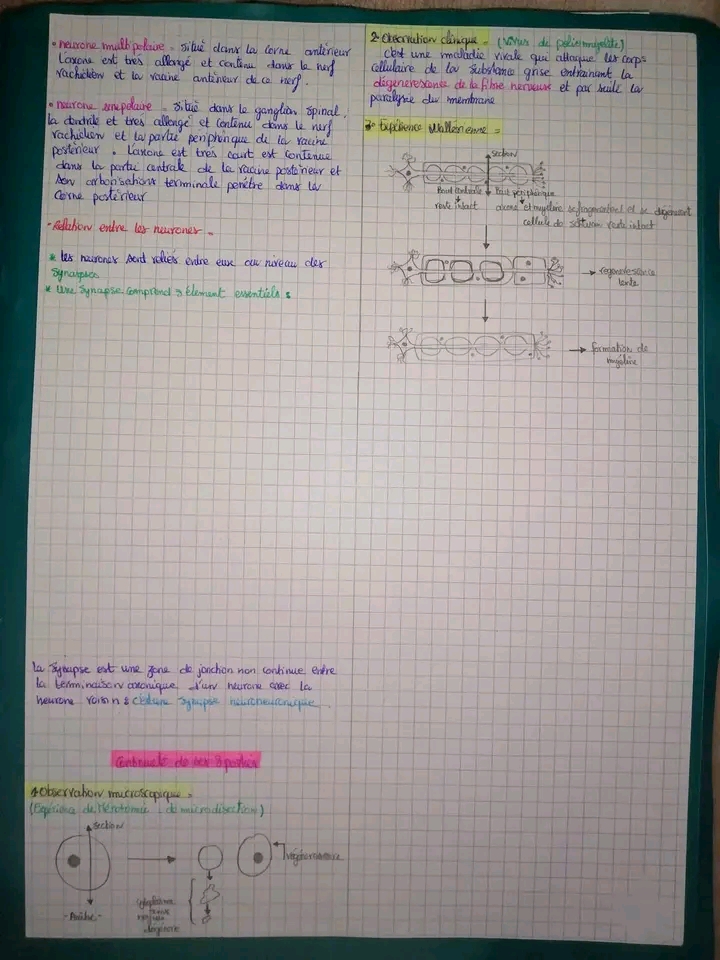 • neurone multipolaire = Situé dans la corne antérieur
L'axone est très allongé et contenu dans le nerf
rachidien et la racine antérieur de ce nerf.
• neurone unipolaire = Situé dans le ganglion spinal.
la dendrite est très allongé et contenu dans le nerf
rachidien et la partie périphérique de la racine
postérieur. L'axone est très court est contenue
dans la partie centrale de la racine postérieur et
son arborisations terminale penètre dans la
Corne postérieur
- Relation entre les neurones =
* les neurones sont reliés entre eux au niveau des
Synapses
* Une Synapse comprend 3 élément essentiels :
la Synapse est une zone de jonction non continue entre
la terminaison axonique d'un neurone avec la
neurone voisin : c'est une Synapse neuroneuronique
Continuité de ces 3 parties
1-Observation microscopique =
(Expérience de Mérotomie de microdissection)
section
régénérescence
cytoplasme
dégénérée
- Amibe -
2-Observation clinique = (virus de poliomyélite)
C'est une maladie virale qui attaque les corps
cellulaire de la substance grise entraînant la
dégénérescence de la fibre nerveuse et par suite la
paralysie du membrane
3- Expérience Wallérienne =
section
Bout centrale
Bout périphérique
reste intact
axone et myéline se fragmentent et se dégénèrent
cellule de schwan reste intact
→ régénérescence
lente
→ formation de
myéline